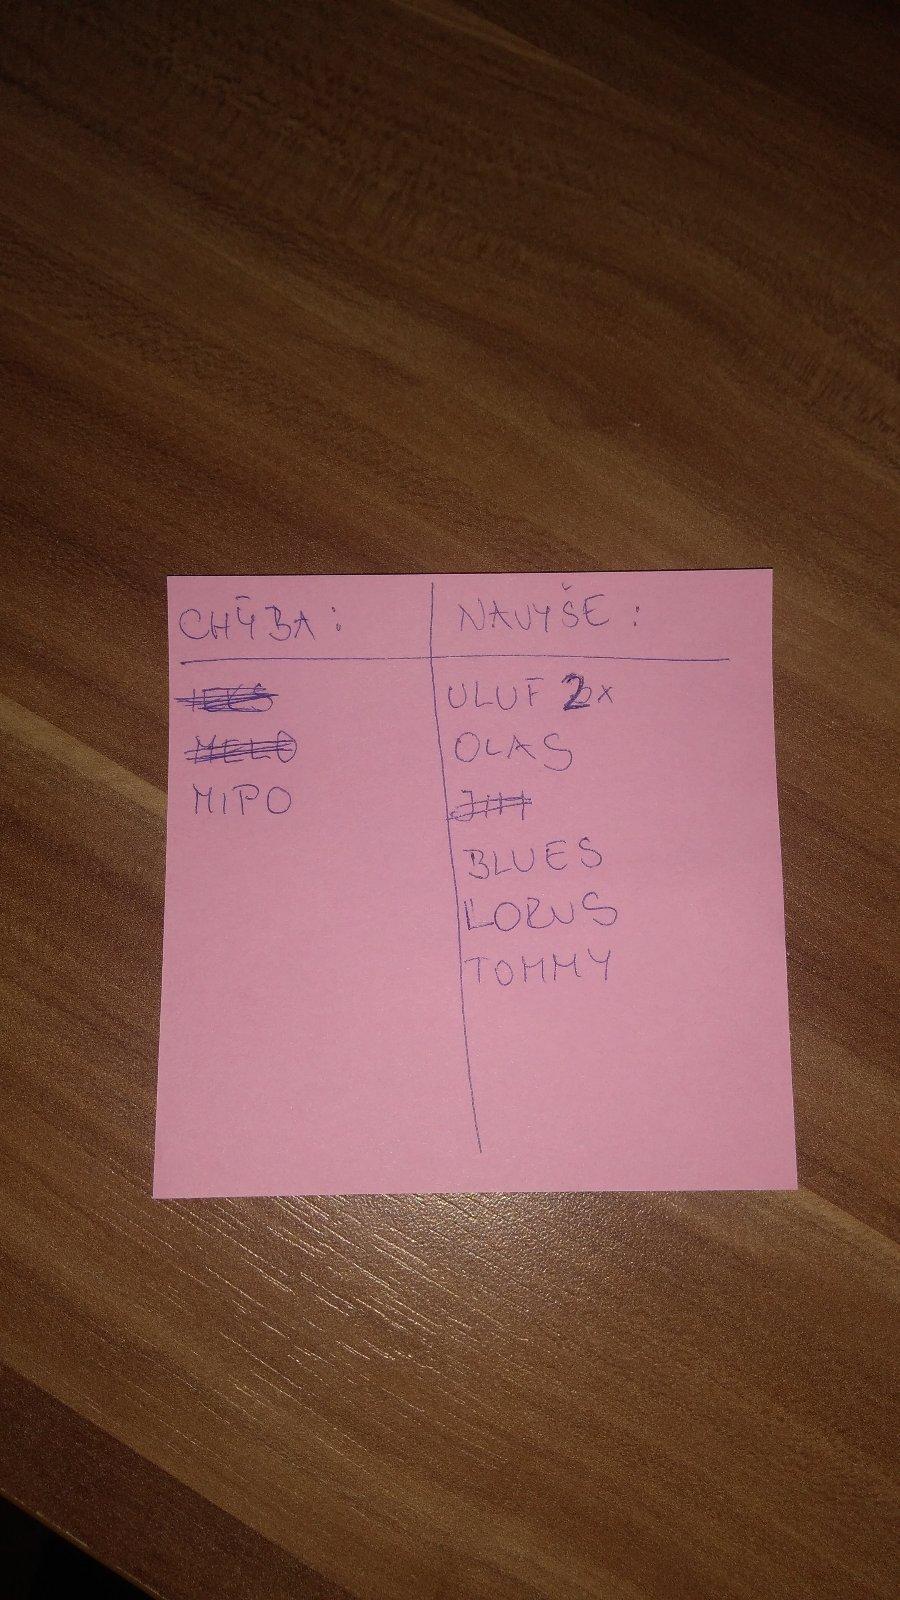 CHÝBA:
NAVYŠE:
MELO
MIPO
ULUF 2x
OLAS
JIMI
BLUES
LORUS
TOMMY